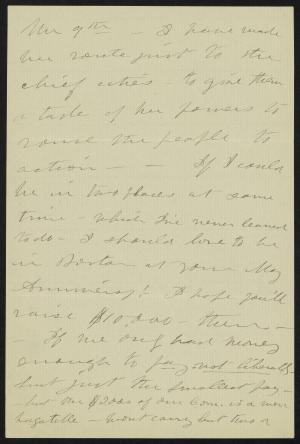 the 9th — I have made
her route just to the
chief cities — to give them
a taste of her powers to
rouse the people to
action — — If I could
be in two places at same
time — which I've never learned
to do — I should love to be
in Boston at your May
Anniversary! I hope you'll
raise $10,000 — there —
— If we only had money
enough to pay not liberally —
but just the smallest pay —
but our $2000 of our Com. is a mere
bagatelle — wont carry but two or